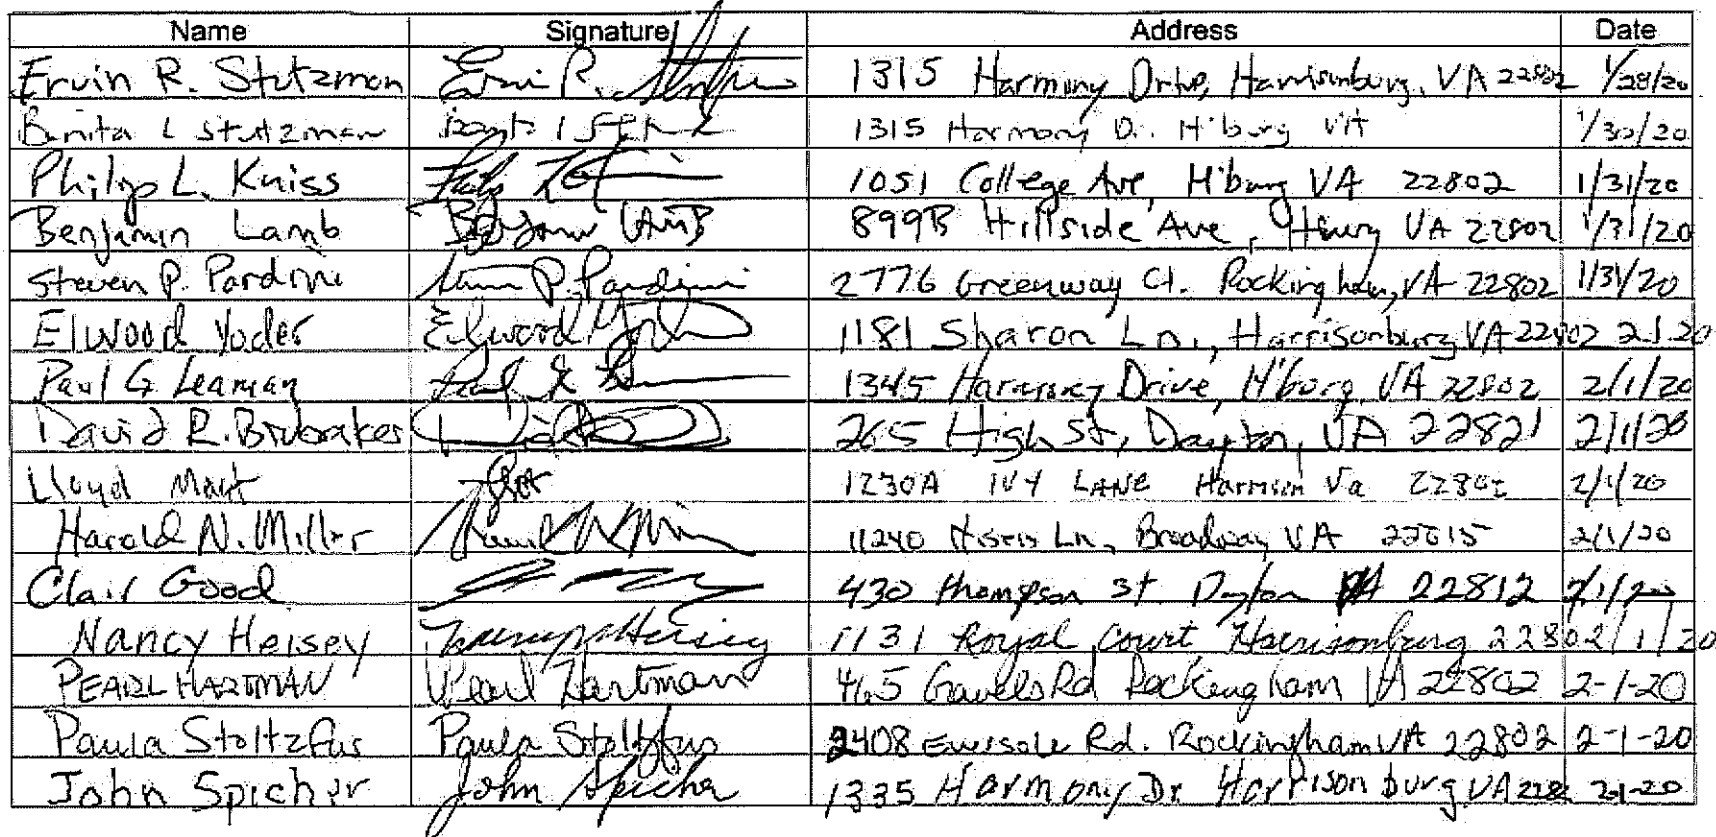 Name Signature Address Date
Ervin R. Stutzman Ervin R. 1315 Harmony Drive, Harrisonburg, VA 22802 1/28/20
Benita L Stutzman 1315 Harmony D. H'burg VA 1/30/20
Philip L. Kniss 1051 College Ave, H'burg VA 22802 1/31/20
Benjamin Lamb Benjamin Lamb 899B Hillside Ave, VA 22802 1/31/20
Steven P. Pardini Steven P. Pardini 2776 Greenway Ct. Rockingham, VA 22802 1/31/20
Elwood Yoder Elwood Yoder 1181 Sharon Ln., Harrisonburg, VA 22802 2.1.20
Paul G Leaman 1345 Harmony Drive, H'burg, VA 22802 2/1/20
David R. Brubaker 265 High St, Dayton, VA 22821 2/1/20
Lloyd 1230A IVY LANE Va 22802 2/1/20
Harold N. Miller 11240 Ln, Broadway VA 2/1/20
Clair Good 430 thompson st. Dayton VA 22812 2/1/20
Nancy Heisey Nancy Heisey 1131 Royal Court Harrisonburg 22802/1/20
PEARL HARTMAN Pearl Hartman 465 Rd Rockingham VA 22802 2-1-20
Paula Stoltzfus Paula Stoltzfus 2408 Eversole Rd. Rockingham VA 22802 2-1-20
John Spicher John Spicher 1335 Harmony Dr. Harrisonburg VA 2-1-20